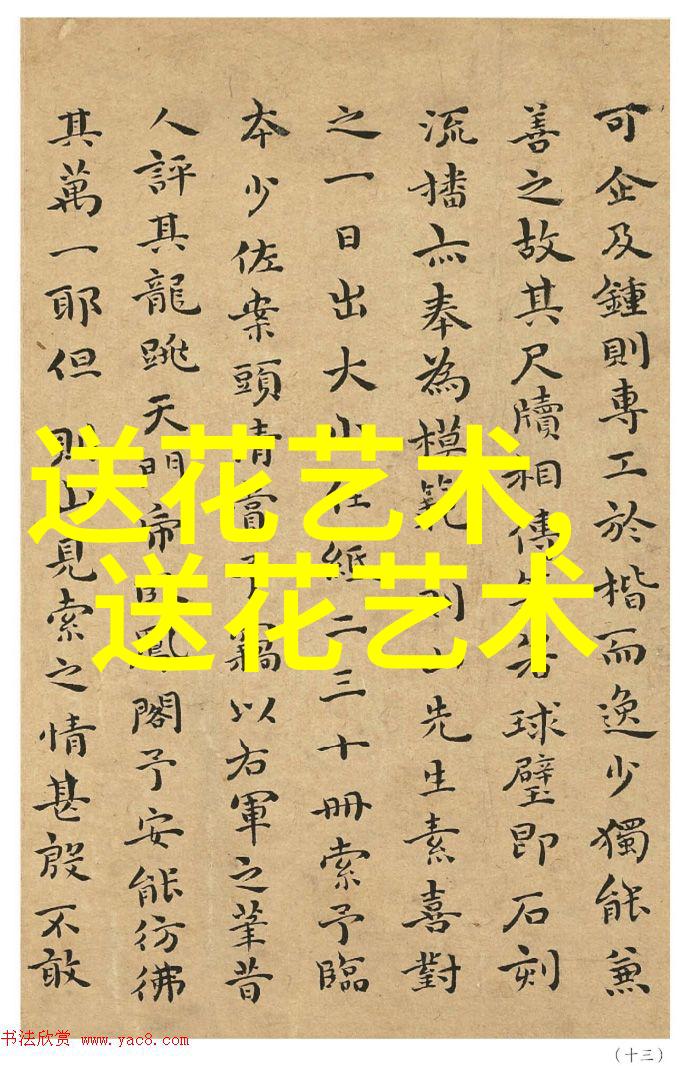 可企及鍾則專工於楷而逸少獨能兼
善之故其尺牘相傳若球璧即石刻
流播亦奉為模範則山先生素喜對
之一日出大小佳紙二三十冊索予臨
本少佐案頭清賞予竊以右軍之筆昔
人評其龍跳天門臥鳳閣予安能彷彿
其萬一耶但則山見索之情甚殷不敢
送花艺术,
送花艺术
书法欣赏 www.yac8.com
(十三)